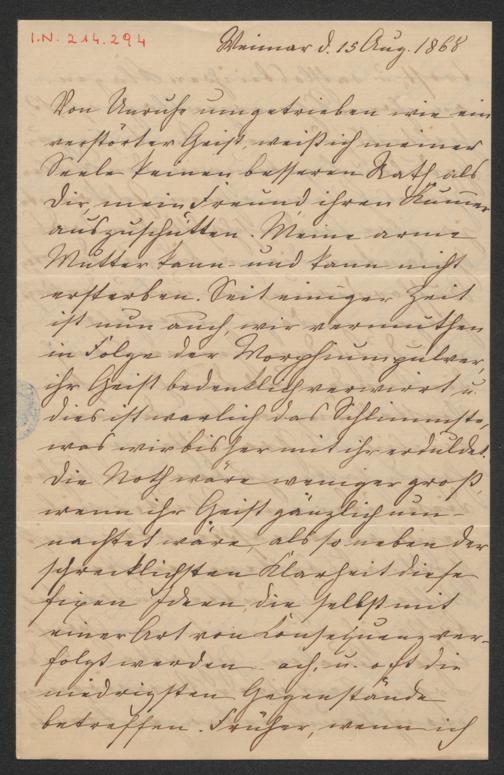 I.N. 214.294
Weimar d. 15 Aug. 1868
Von Unruhe umgetrieben wie ein
verstörter Geist, weiß ich meiner
Seele keinen besseren Rath als
Dir mein Freund ihren Kummer
auszuschütten. Meine arme
Mutter kann und kann nicht
ersterben. Seit einiger Zeit
ist nun auch, wir vermuthen
in Folge der Morphiumpulver,
ihr Geist bedenklich verwirrt u.
dies ist warlich das Schlimmste,
was wir bisher mit ihr erduldet.
Die Noth wäre weniger groß,
wenn ihr Geist gänzlich um-
nachtet wäre, als so neben der
schrecklichsten Klarheit diese
fixen Ideen, die selbst mit
einer Art von Consequenz ver-
folgt werden ach, u. oft die
niedrigsten Gegenstände
betreffen. Früher, wenn ich